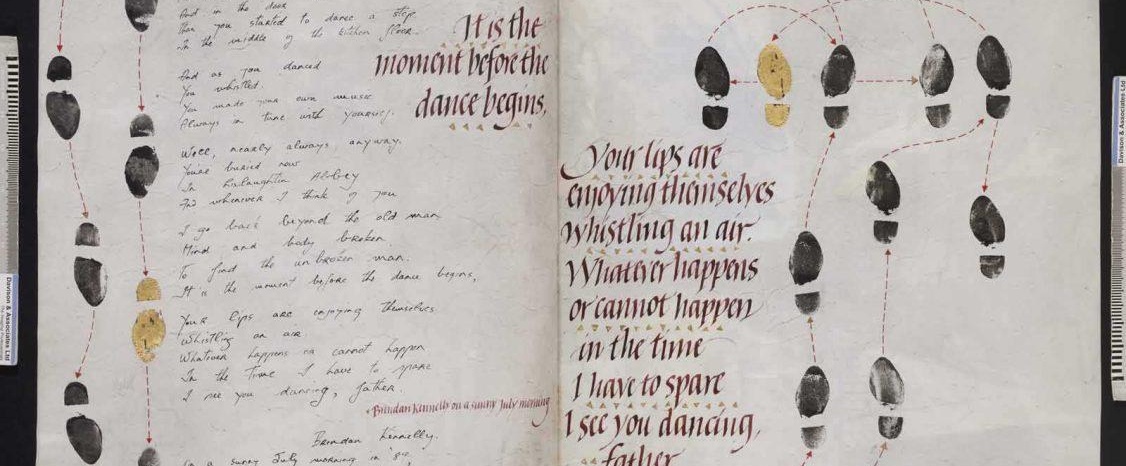 And in the door
Then you started to dance a step
In the middle of the kitchen floor.
And as you danced
You whistled.
You made your own music
Always in tune with yourself.
Well, nearly always, anyway.
You're buried now
In Lislaughtin Abbey
And whenever I think of you
I go back beyond the old man
Mind and body broken
To find the unbroken man.
It is the moment before the dance begins,
Your lips are enjoying themselves
Whistling an air.
Whatever happens or cannot happen
In the time I have to spare
I see you dancing, father.
Brendan Kennelly on a sunny July morning
Brendan Kennelly.
On a sunny July morning in
It is the
moment before the
dance begins,
Your lips are
enjoying themselves
whistling an air.
Whatever happens
or cannot happen
in the time
I have to spare
I see you dancing,
father.
Davison & Associates Ltd
Davison & Associates Ltd